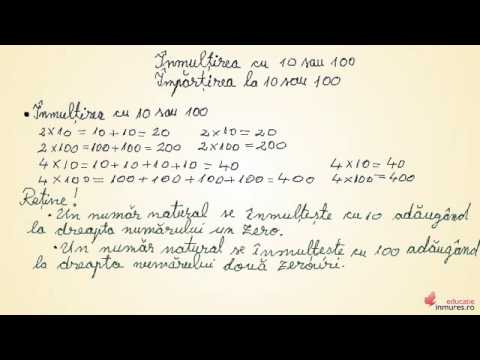 Înmulțirea cu 10 sau 100
Împărțirea la 10 sau 100
• Înmulțirea cu 10 sau 100
2×10 = 10 + 10 = 20 2×10 = 20
2×100 = 100+100 = 200 2×100 = 200
4×10 = 10 + 10 + 10 + 10 = 40 4×10 = 40
4×100 = 100 + 100 + 100 + 100 = 400 4×100 = 400
Reține!
• Un număr natural se înmulțește cu 10 adăugând
la dreapta numărului un zero.
• Un număr natural se înmulțește cu 100 adăugând
la dreapta numărului două zerouri.
educatie
inmures.ro